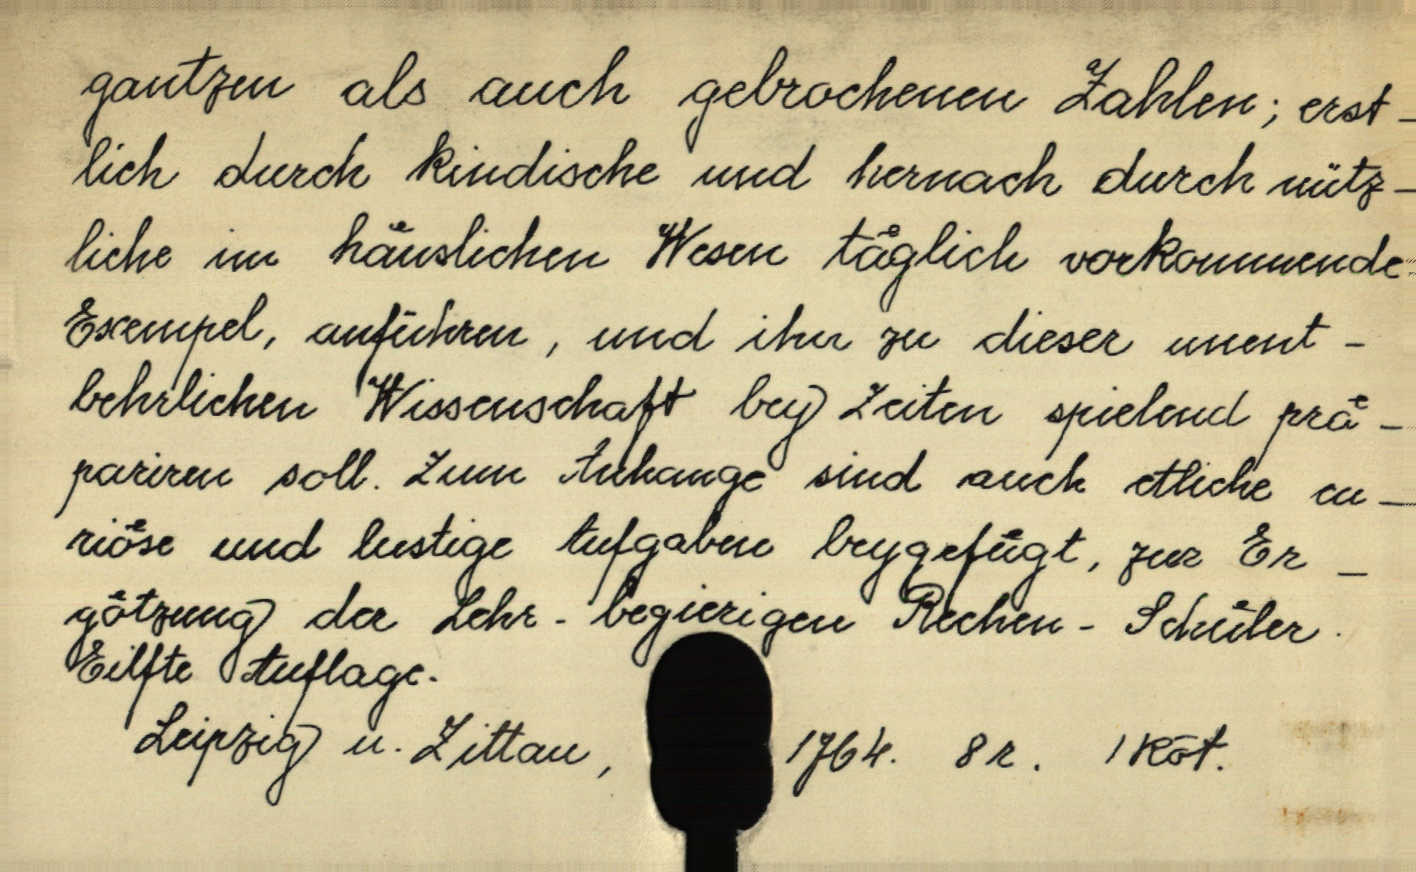 gantzen als auch gebrochenen Zahlen; erst-
lich durch kindische und hernach durch nütz-
liche im haͤuslichen Wesen taͤglich vorkommende
Exempel, anführen, und ihn zu dieser unent-
behrlichen Wissenschaft bey Zeiten spielend praͤ-
pariren soll. Zum Anhange sind auch etliche cu-
rioͤse und lustige Aufgaben beygefuͤgt, zur Er-
goͤtzung der Lehr-begierigen Rechen-Schuͤler.
Eilfte Auflage.
Leipzig u. Zittau, 1764. 8r. 1 Köt.